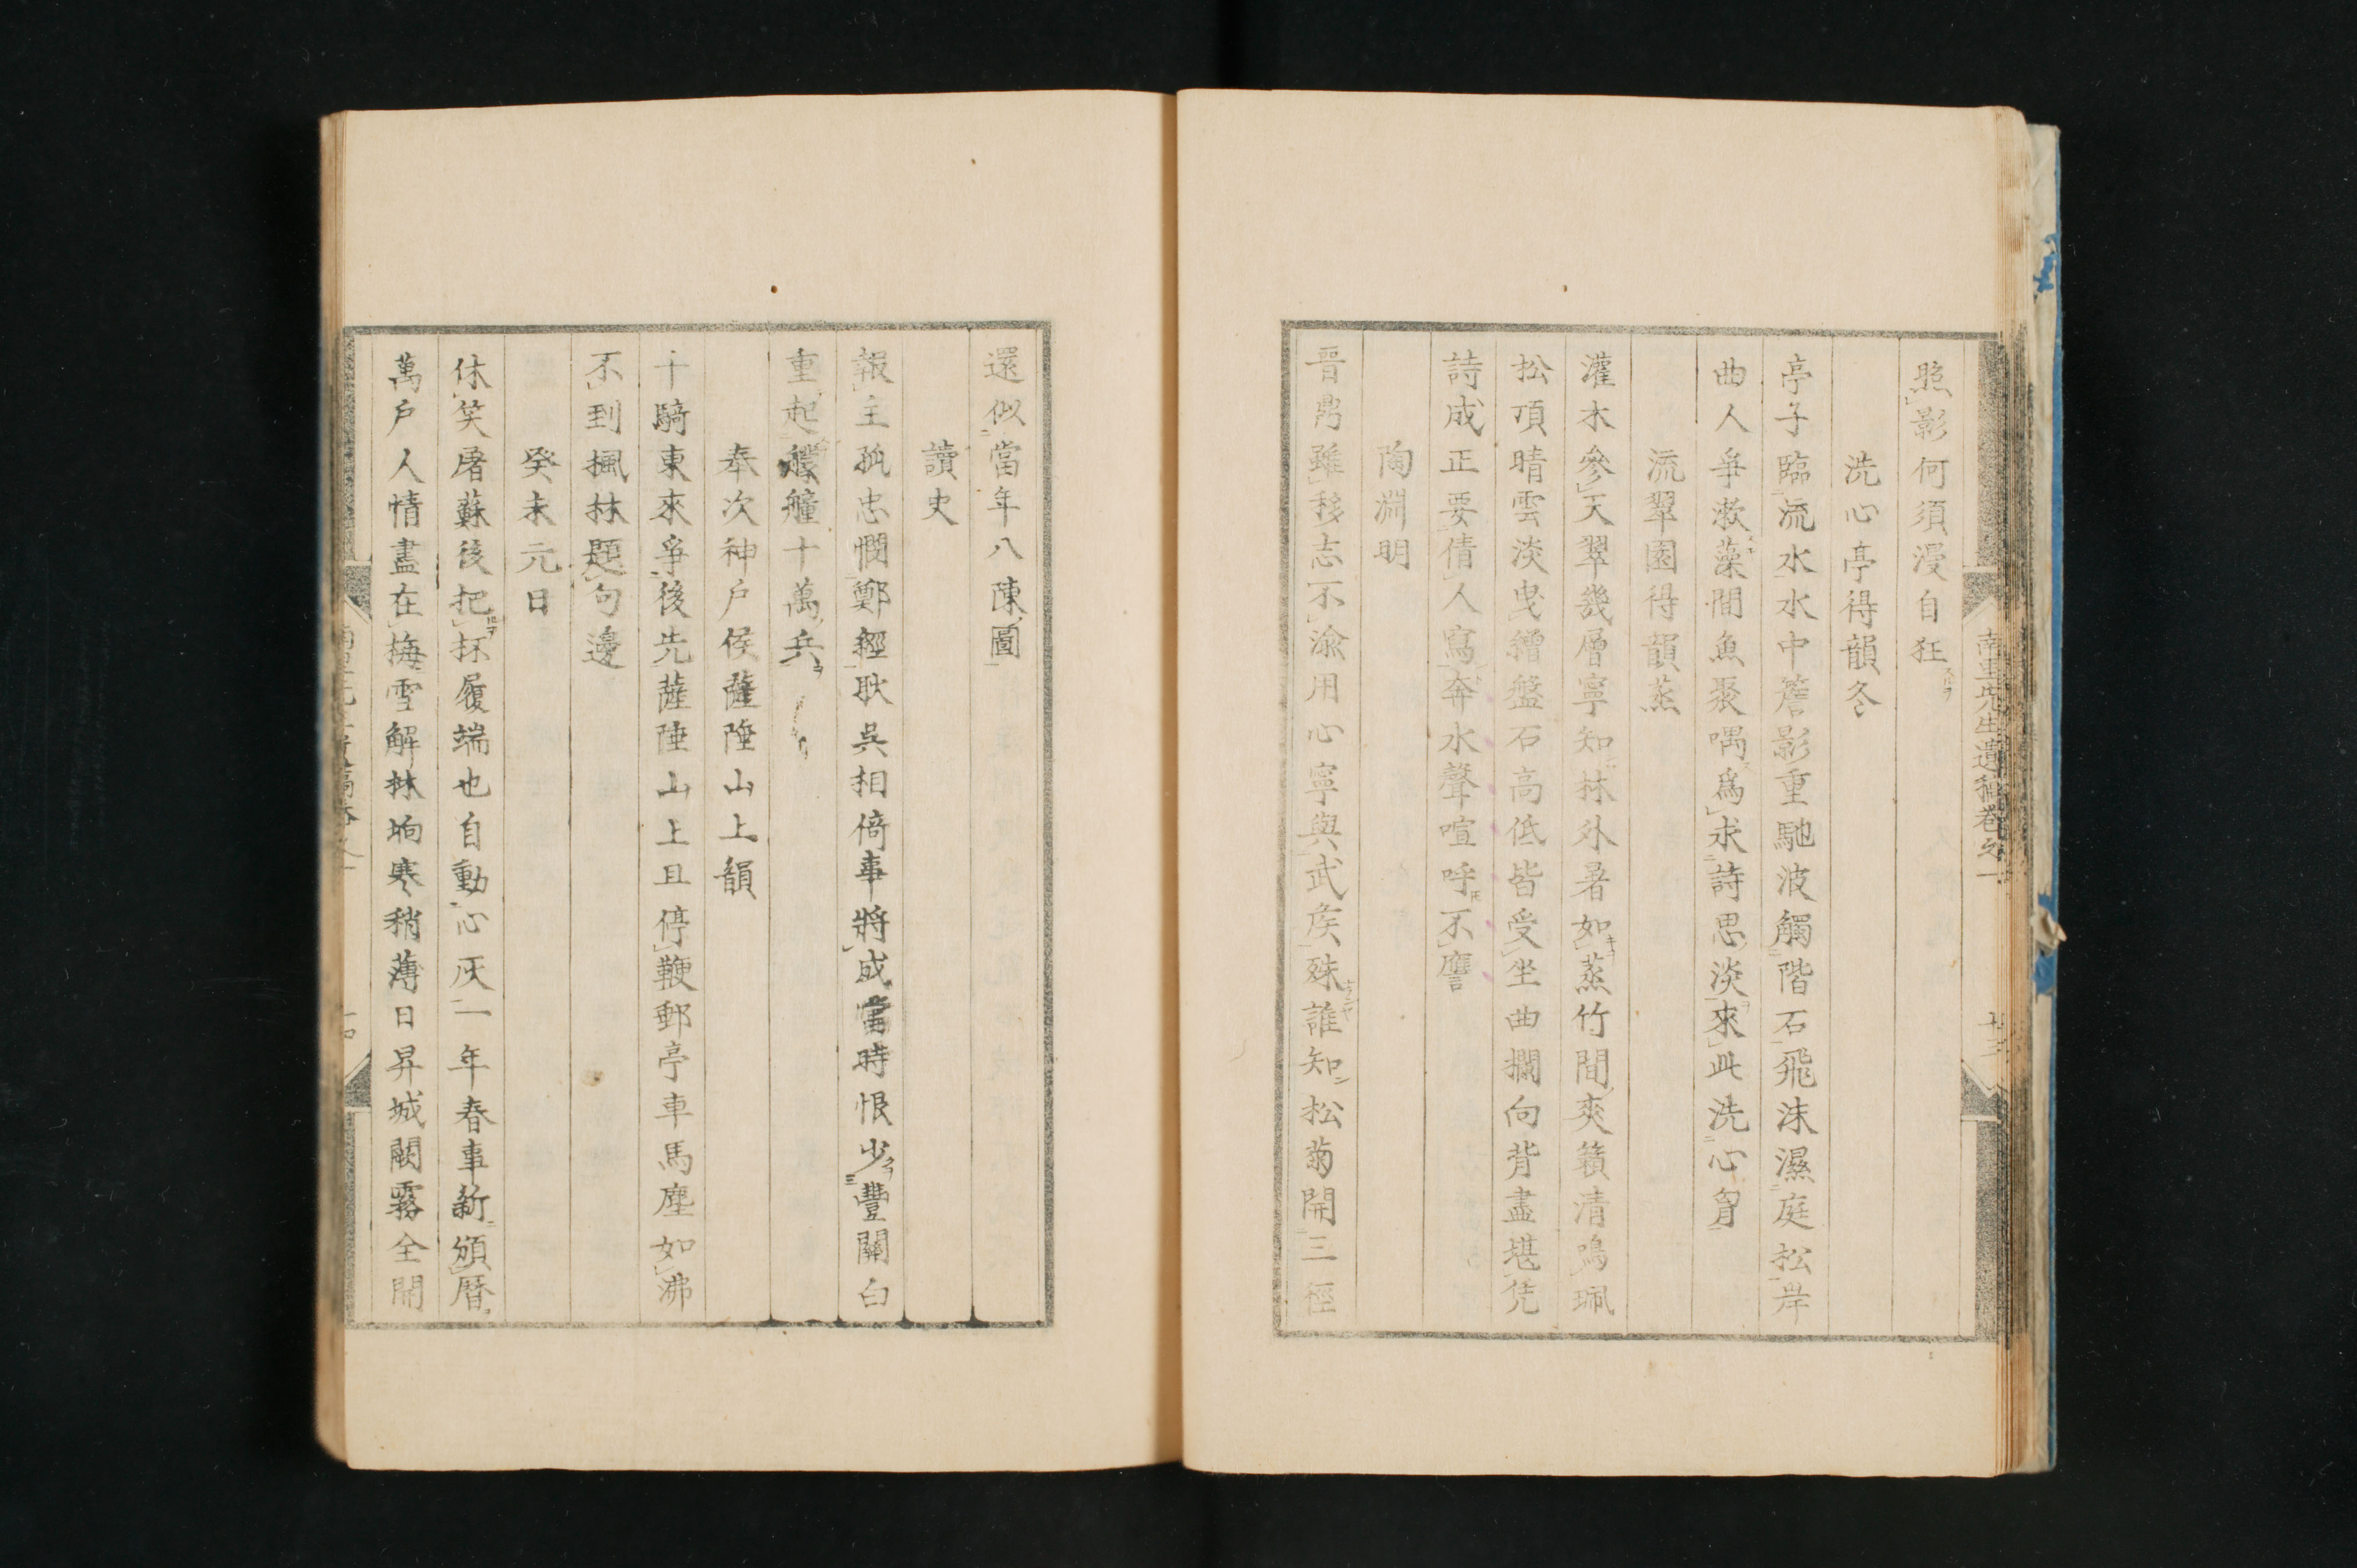 南里先生遺稿卷之一
照影何須漫自狂
洗心亭得韻冬
亭子臨流水水中簷影重馳波觸階石飛沫濕庭松岸
曲人爭漱藻間魚聚喁爲求詩思淡來此洗心胷
流翠園得韻蒸
灌木參天翠幾層寧知林外暑如蒸竹間爽籟清鳴珮
松頂晴雲淡曳繒盤石高低皆受坐曲欄向背盡堪凭
詩成正要倩人寫奔水聲喧呼不譍
陶淵明
晋鼎雖移志不渝用心寧與武矦殊誰知松菊開三徑
還似當年八陳圖
讀史
報主孤忠憫鄭經耿吳相倚事將成當時恨少豐關白
重起艨艟十萬兵
奉次神戶侯薩陲山上韻
十騎東來爭後先薩陲山上且停鞭郵亭車馬塵如沸
不到楓林題句邊
癸未元日
休笑屠蘇後把抔履端也自動心灰一年春事新頒曆
萬戶人情盡在梅雪解林坰寒稍薄日昇城闕霧全開